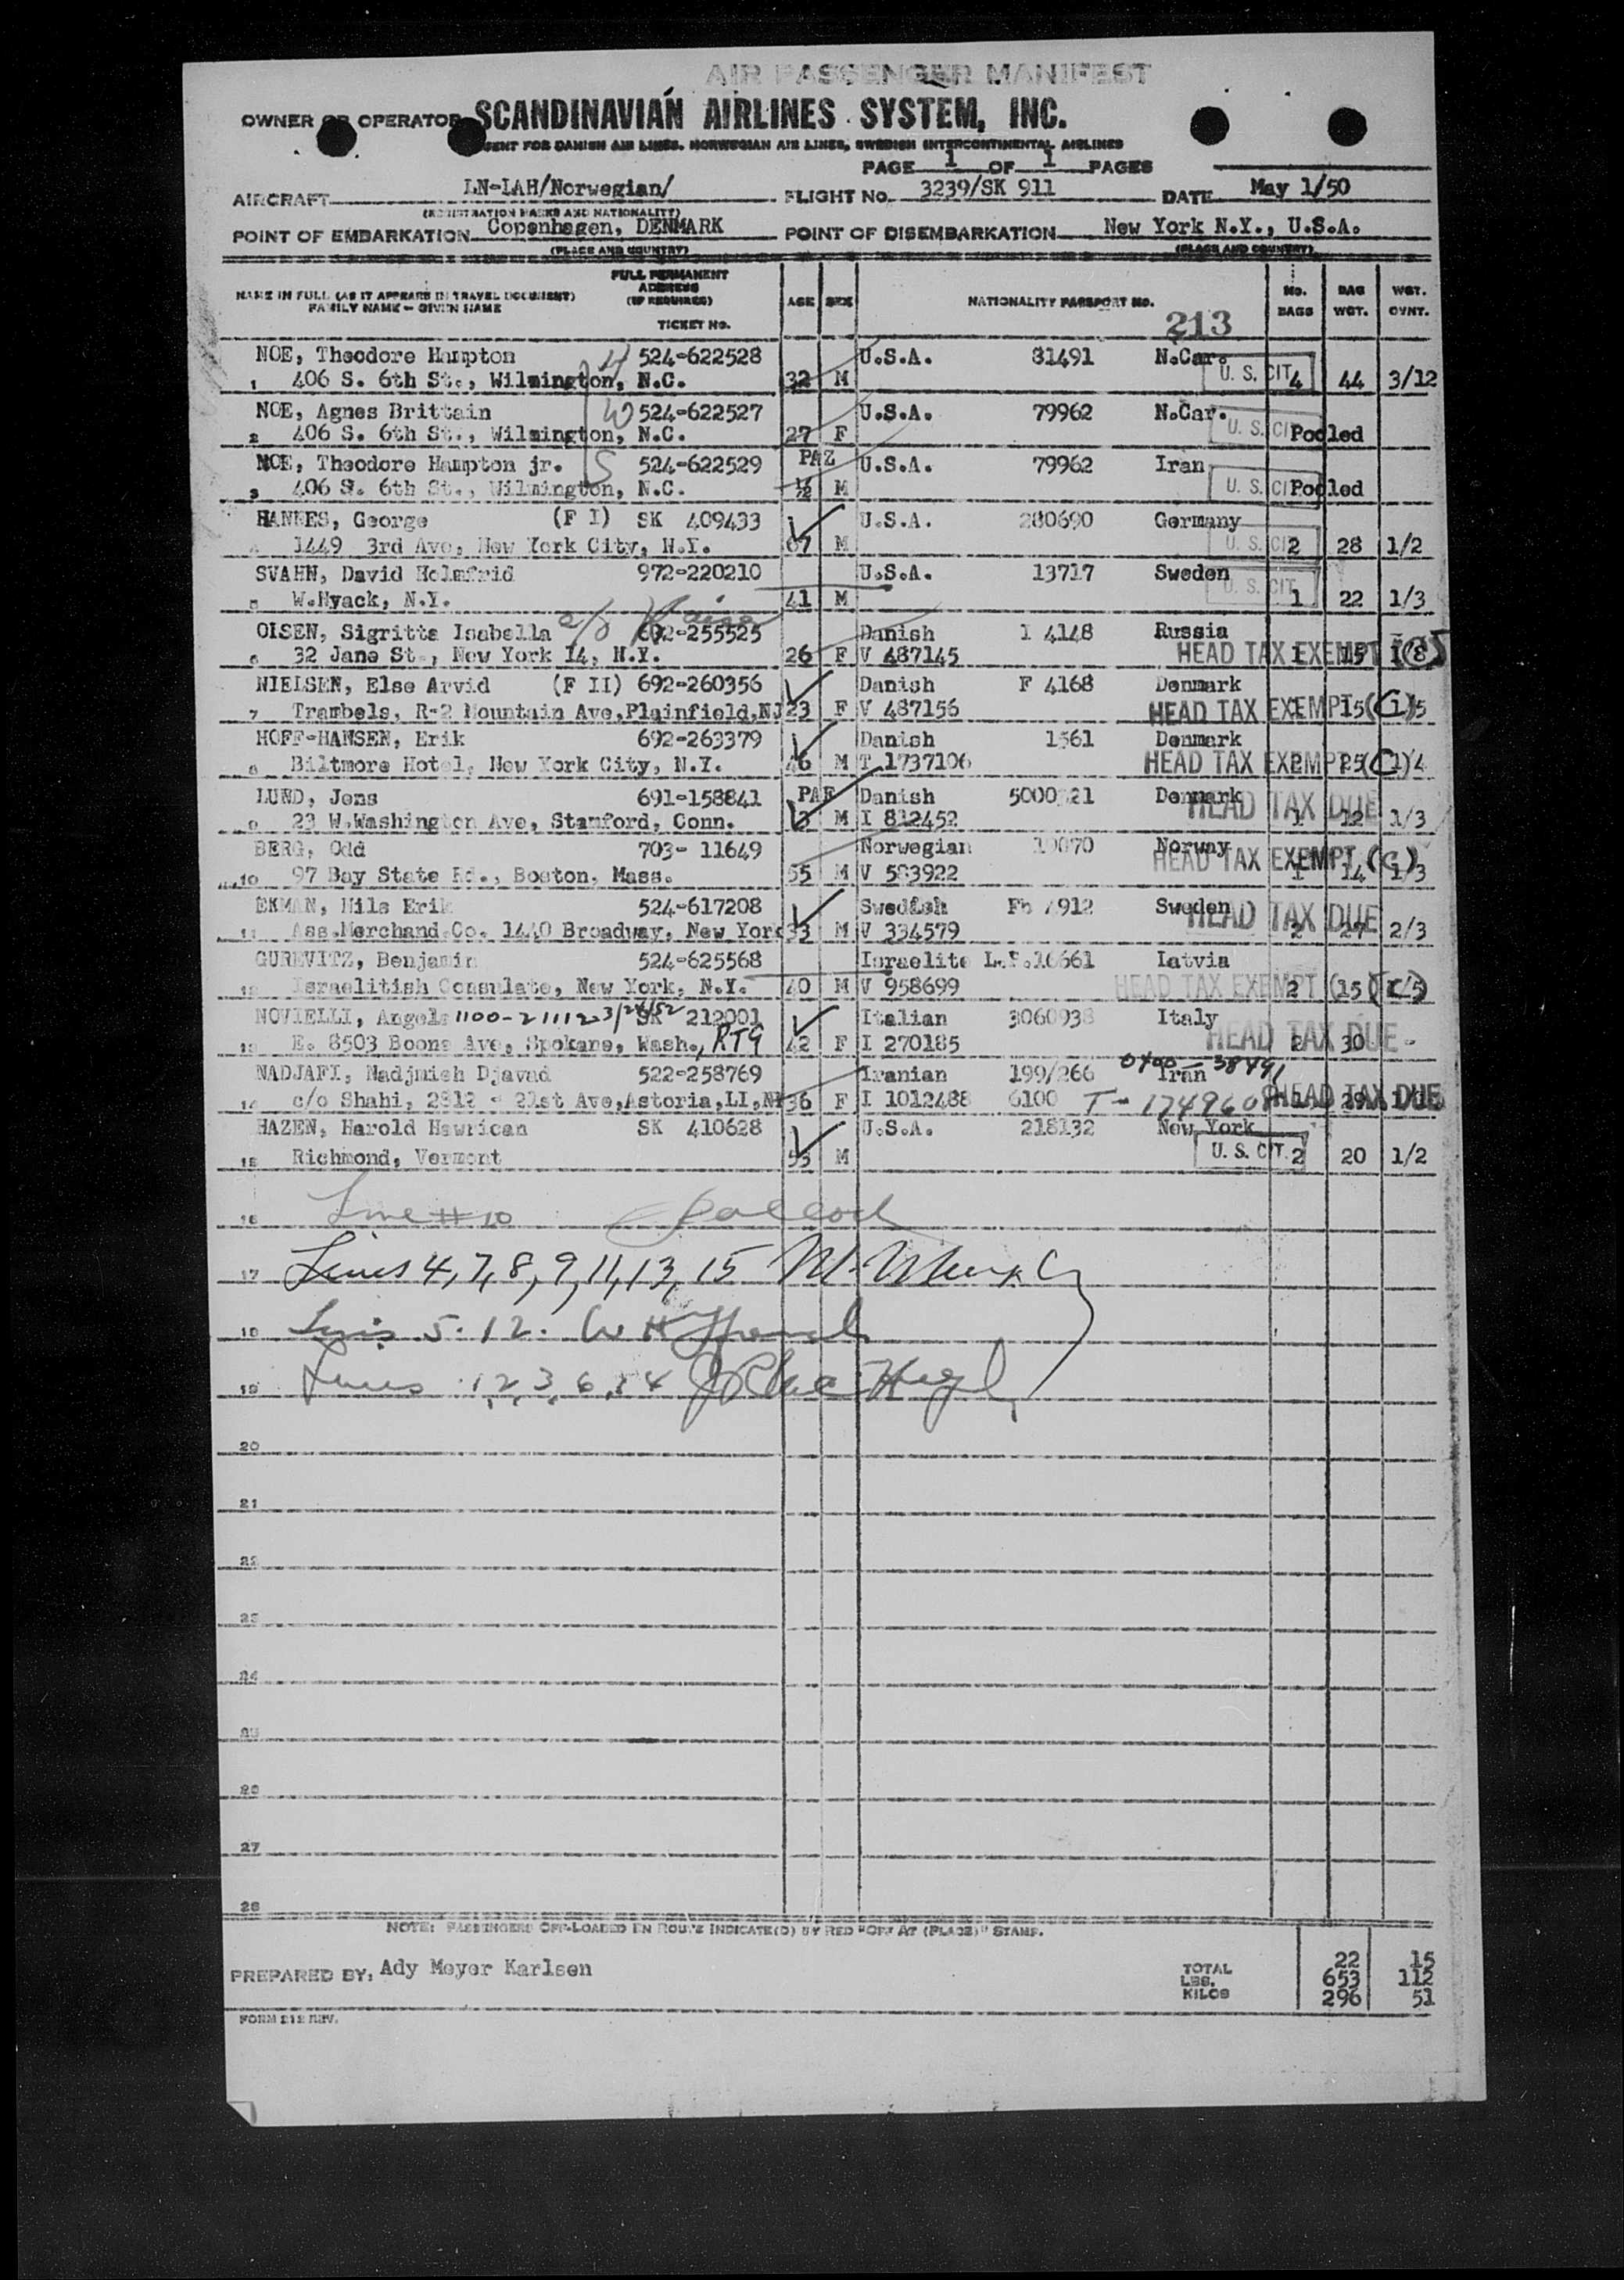 AIR PASSENGER MANIFEST
OWNER OR OPERATOR SCANDINAVIAN AIRLINES SYSTEM, INC.
AGENT FOR DANISH AIR LINES, NORWEGIAN AIR LINES, SWEDISH INTERCONTINENTAL AIRLINES
PAGE 1 OF 1 PAGES
AIRCRAFT LN-IAH/Norwegian/ FLIGHT No. 3239/SK 911 DATE May 1/50
(REGISTRATION MARKS AND NATIONALITY)
POINT OF EMBARKATION Copenhagen, DENMARK POINT OF DISEMBARKATION New York N.Y., U.S.A.
(PLACE AND COUNTRY) (PLACE AND COUNTRY)
NAME IN FULL (AS IT APPEARS IN TRAVEL DOCUMENT) FAMILY NAME - GIVEN NAME FULL PERMANENT ADDRESS (IF REQUIRED) TICKET No. AGE SEX NATIONALITY PASSPORT No. No. BAGS BAG WGT. WGT. OVNT.
213
NOE, Theodore Hampton H 524-622528 U.S.A. 81491 N.Car.
1 406 S. 6th St., Wilmington, N.C. 32 M U. S. CIT 4 44 3/12
NOE, Agnes Brittain W 524-622527 U.S.A. 79962 N.Car.
2 406 S. 6th St., Wilmington, N.C. 27 F U. S. CIT Pooled
NOE, Theodore Hampton jr. S 524-622529 PAZ U.S.A. 79962 Iran
3 406 S. 6th St., Wilmington, N.C. M U. S. CIT Pooled
HANNES, George (F I) SK 409433 U.S.A. 280690 Germany
4 1449 3rd Ave, New York City, N.Y. 67 M U. S. CIT 2 28 1/2
SVAHN, David Holmfrid 972-220210 U.S.A. 13717 Sweden
5 W.Nyack, N.Y. 41 M U. S. CIT 1 22 1/3
OLSEN, Sigritte Isabella c/o 692-255525 Danish I 4148 Russia
6 32 Jane St., New York 14, N.Y. 26 F V 487145 HEAD TAX EXEMPT 1 15 1/8
NIELSEN, Else Arvid (F II) 692-260356 Danish F 4168 Denmark
7 Trambels, R-2 Mountain Ave,Plainfield,NJ 23 F V 487156 HEAD TAX EXEMPT 1 15 (C) 1/5
HOFF-HANSEN, Erik 692-263379 Danish 1561 Denmark
8 Biltmore Hotel, New York City, N.Y. 46 M T 1737106 HEAD TAX EXEMPT 2 25 (C) 1/4
LUND, Jens 691-158841 PAF Danish Denmark
9 23 W.Washington Ave, Stamford, Conn. M I 812452 HEAD TAX DUE 1 12 1/3
BERG, Odd 703- 11649 Norwegian 10070 Norway
10 97 Bay State Rd., Boston, Mass. 55 M V 583922 HEAD TAX EXEMPT (C) 1 14 1/3
EKMAN, Nils Erik 524-617208 Swedish Fb 4912 Sweden
11 Ass.Merchand.Co. 1440 Broadway, New York 33 M V 334579 HEAD TAX DUE 2 27 2/3
GUREVITZ, Benjamin 524-625568 Israelite L.P.16661 Latvia
12 Israelitish Consulate, New York, N.Y. 40 M V 958699 HEAD TAX EXEMPT 2 15 1/5
NOVIELLI, Angela 1100-211112 3/24/52 SK 212001 Italian 3060938 Italy
13 E. 8503 Boone Ave, Spokane, Wash., RTG 42 F I 270185 HEAD TAX DUE 2 30 -
NADJAFI, Nadjmieh Djavad 522-258769 Iranian 199/266 Iran 0400-38491
14 c/o Shahi, 2812 - 21st Ave,Astoria,LI,NY 36 F I 1012488 6100 T-1749608 HEAD TAX DUE
HAZEN, Harold Hawrican SK 410628 U.S.A. 218132 New York
15 Richmond, Vermont 53 M U. S. CIT. 2 20 1/2
16 Line # 10
17 Lines 4,7,8,9,11,13,15 M. Murphy
18 Lines 5-12. W H
19 Lines 1,2,3,6,14
20
21
22
23
24
25
26
27
28
NOTE: PASSENGERS OFF-LOADED EN ROUTE INDICATE(D) BY RED "OFF AT (PLACE)" STAMP.
PREPARED BY: Ady Meyer Karlsen
TOTAL 22 15
LBS. 653 112
KILOS 296 51
FORM 212 REV.